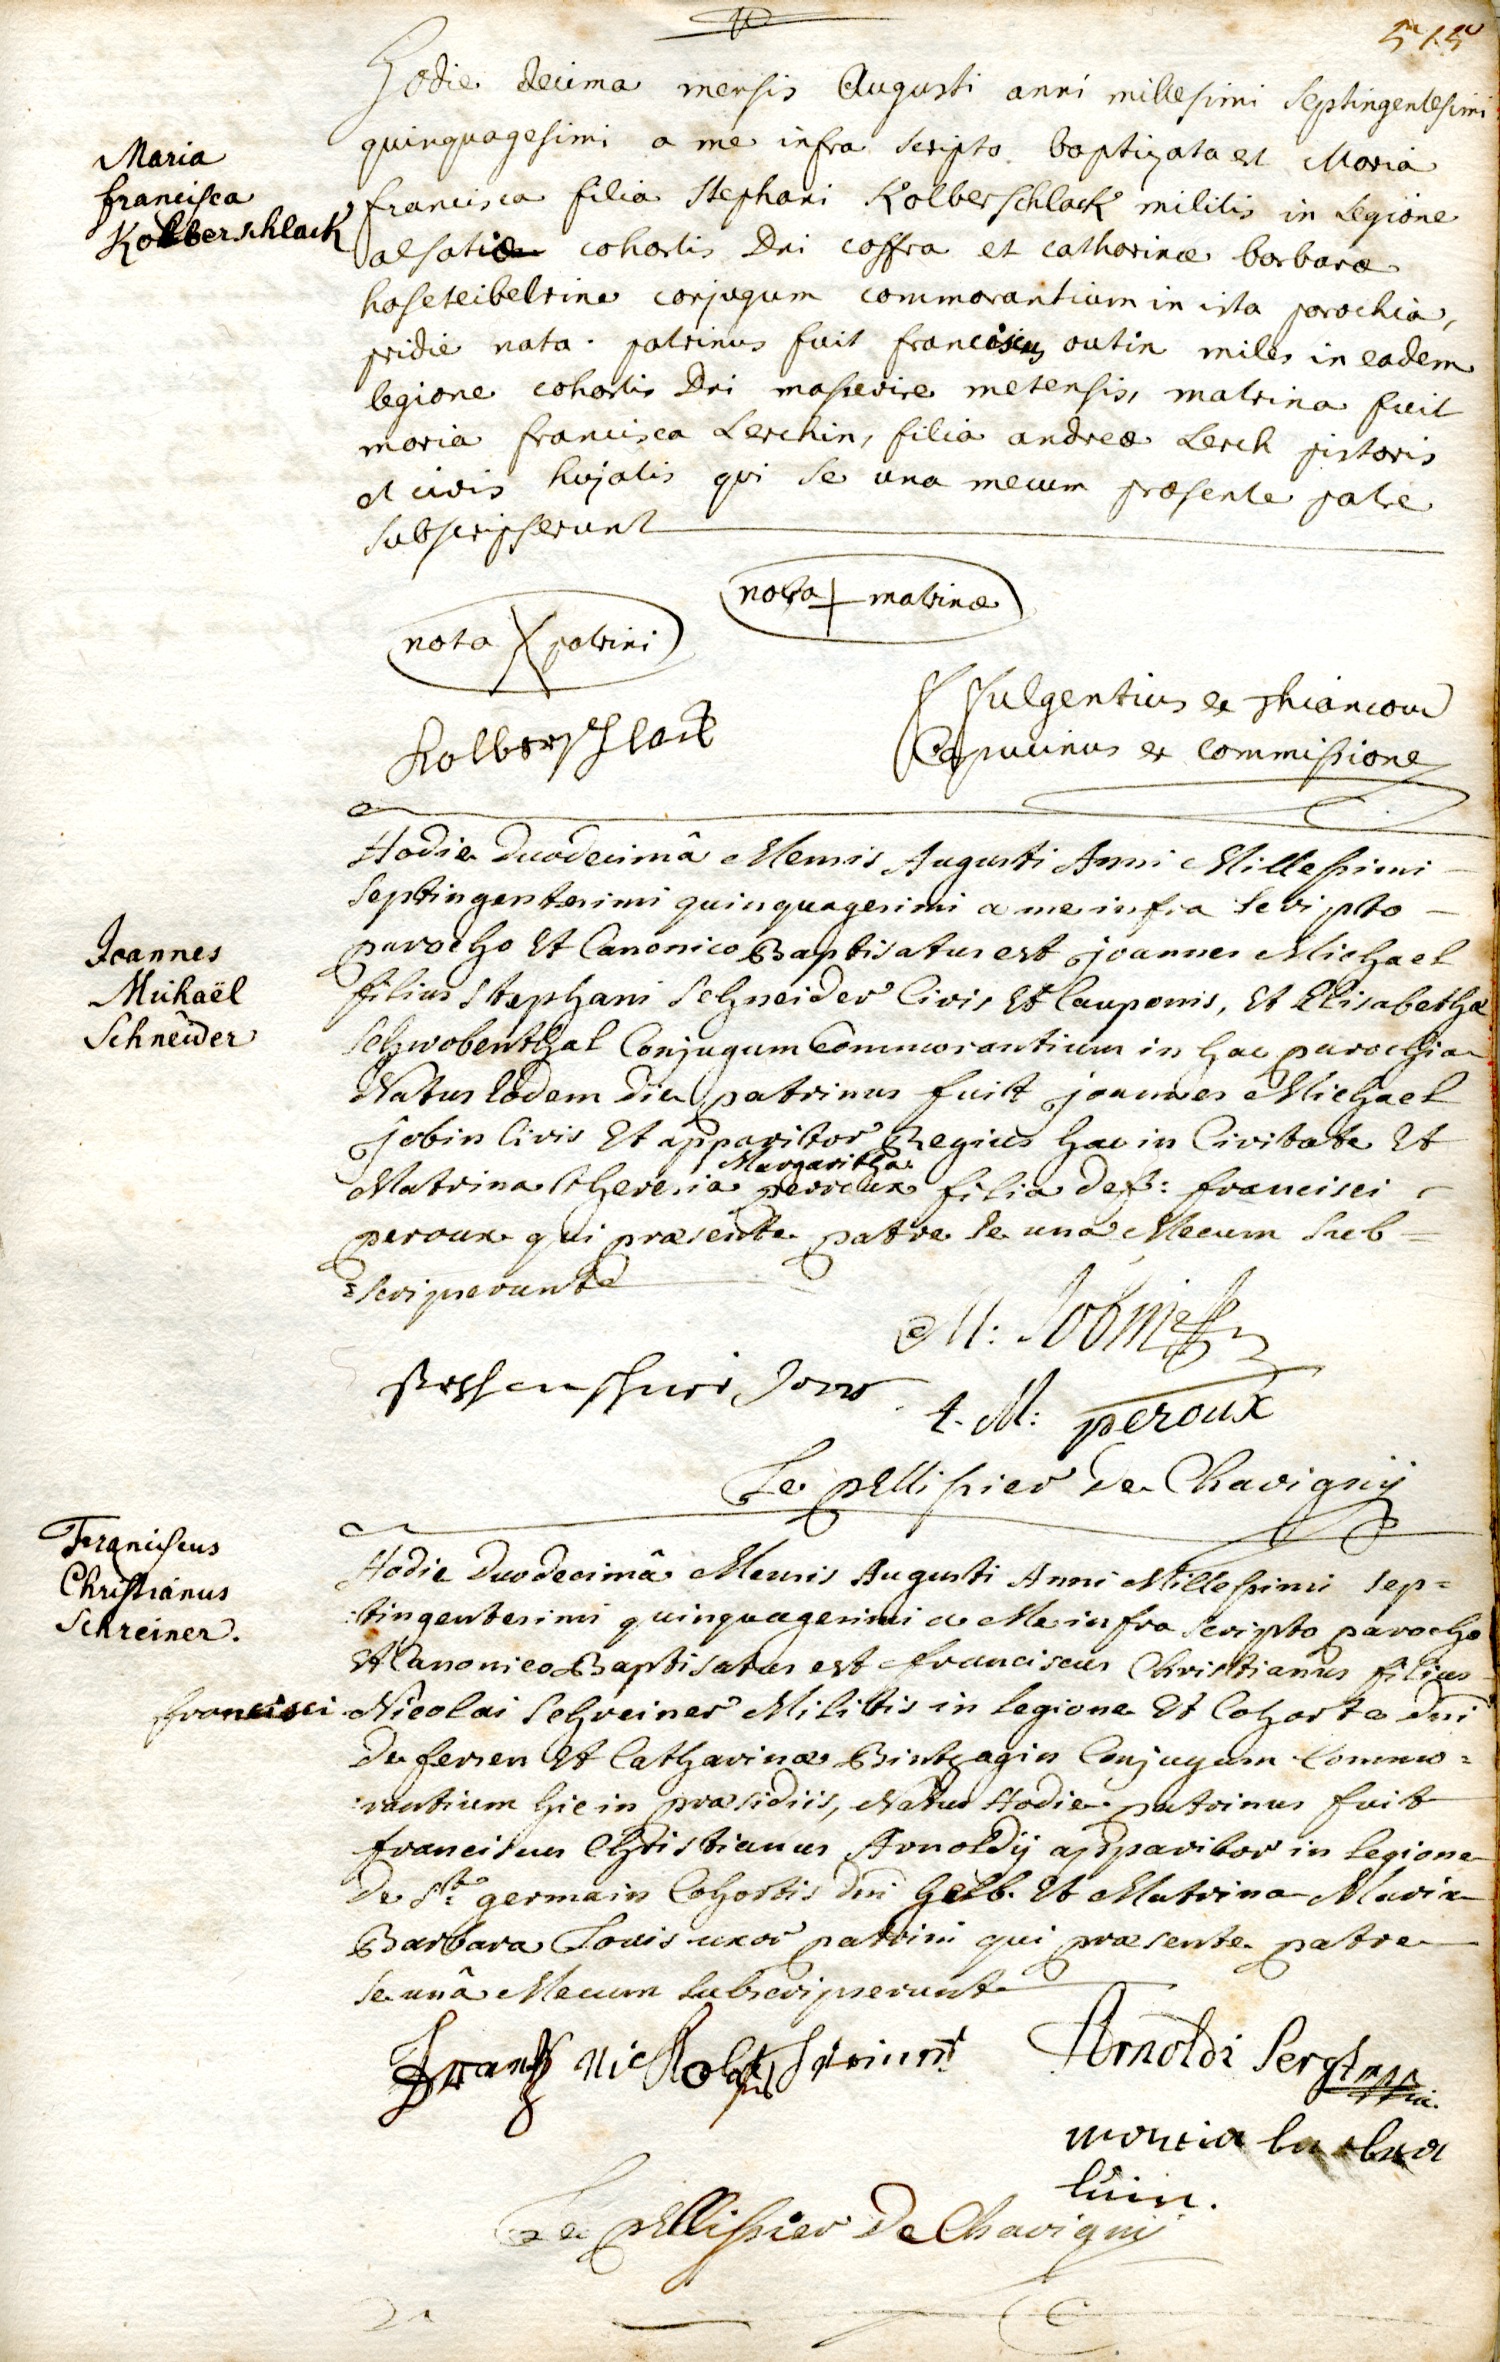 515
Hodie decima mensis Augusti anni millesimi septingentesimi
quinquagesimi a me infra scripto baptizata est Maria
Maria
francisca
Kolberschlack
francisca filia Stephani Kolberschlack militis in Legione
alsatiæ cohortis Dni coffra et catharinæ barbaræ
haseteibelrine conjugum commorantium in ista parochia,
pridie nata. patrinus fuit franciscus outin miles in eadem
legione cohortis Dni metensis, matrina fuit
maria francisca Lerchin, filia andreæ Lerch pistoris
et civis hujatis qui se una mecum præsente patre
subscripserunt
nota patrini
nota matrinæ
Kolberschlack
f fulgentius ex
Capucinus ex commissione
Hodie Duodecimâ Mensis Augusti Anni Millesimi
Septingentesimi quinquagesimi a me infra scripto
Joannes
Michaël
Schneider
parocho Et Canonico Baptisatus est joannes Michael
filius Stephani Schneider Civis Et Cauponis, Et Elisabethæ
Schwobenthal Conjugum Commorantium in hac parochia
Natus Eodem Die patrinus fuit joannes Michael
jobin Civis Et apparitor Regius hac in Civitate Et
Matrina theresia Margaritha peroux filia def: francisci
peroux qui præsente patre se unâ Mecum sub=
=scripserunt
M: Jobin
t. M: peroux
Le pellissier De Chavignÿ
Franciscus
Christianus
Schreiner.
Hodie Duodecimâ Mensis Augusti Anni Millesimi sep=
:tingentesimi quinquagesimi a Me infra scripto parocho
Et Canonico Baptisatus est franciscus Christianus filius
francisci Nicolai Schreiner Militis in legione Et Cohorte dni
De fersen Et Catharinæ Bintzagin Conjugum Commo=
:rantium hic in præsidiis, Natus Hodie patrinus fuit
franciscus Christianus Arnoldÿ apparitor in legione
De St. germain Cohortis dni Gelb. Et Matrina Maria
Barbara Louis uxor patrini qui præsente patre
se unâ Mecum subscripserunt
Frantz nickolas
Arnoldi Sergt
maria
luin.
Le pellissier De Chavigni